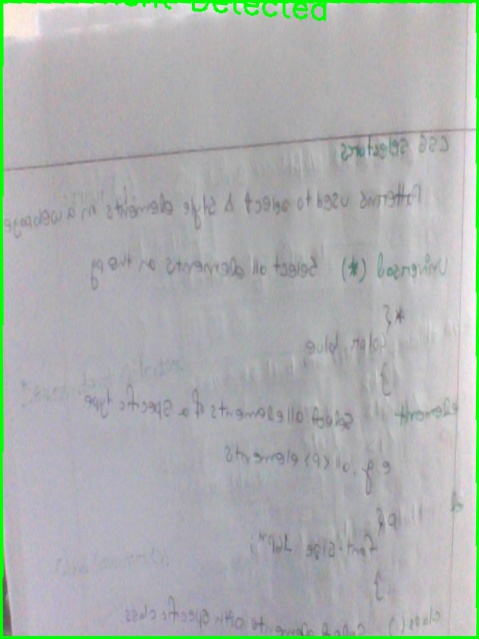 Document Detected
CSS Selectors
Patterns used to select & style elements in a webpage
Universal (*) Select all elements on the pg
*{
color: blue
}
element select all elements of a specific type
e.g. all <p> elements
p{
font-size: 16px;
}
class (.) Select elements with specific class